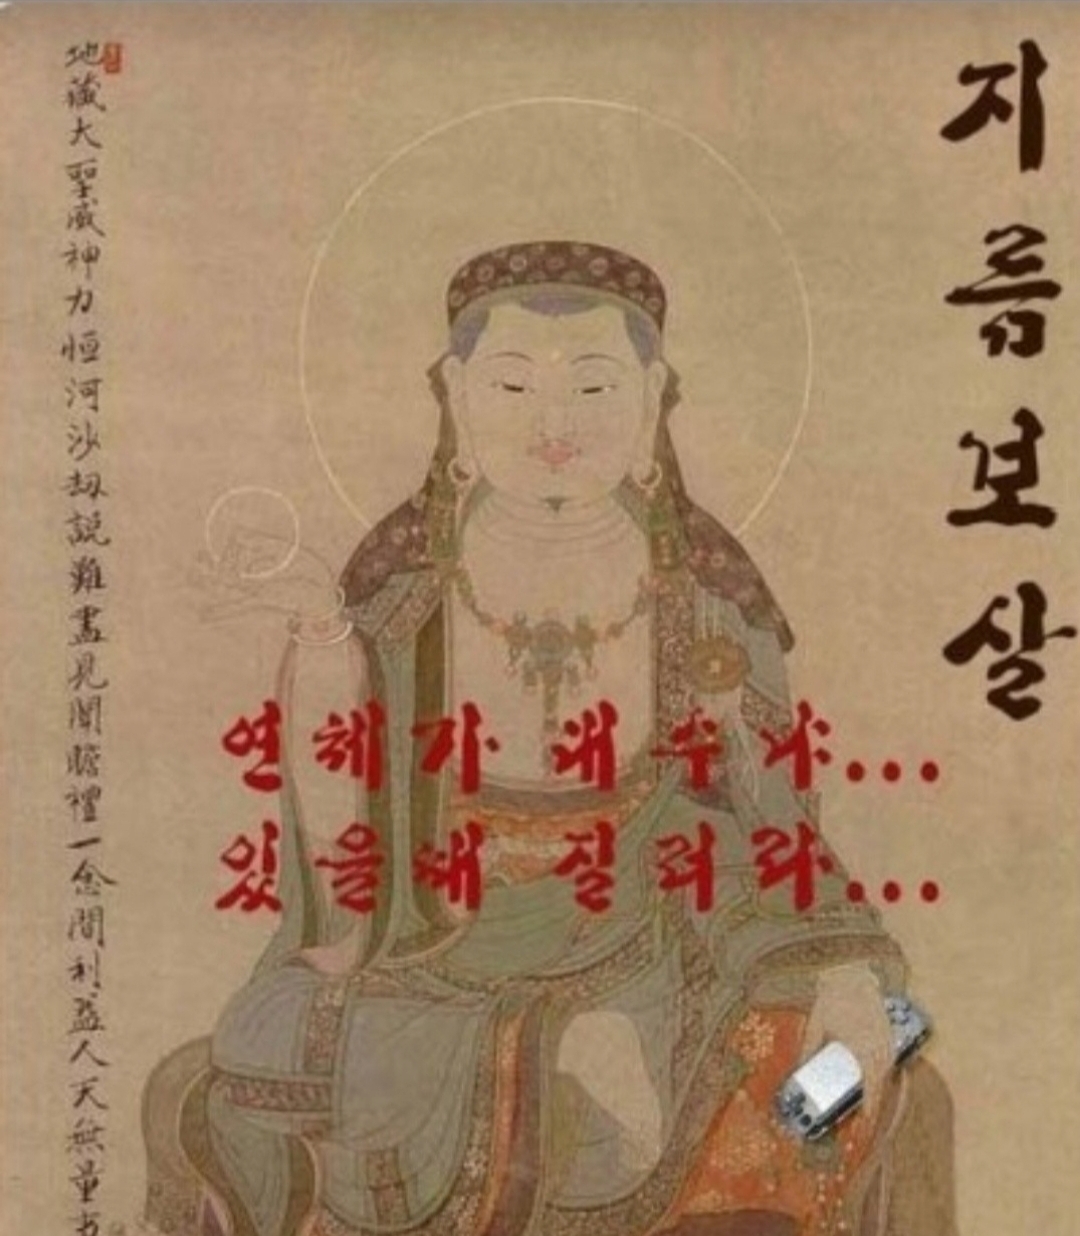 지름보살
연체가 대수냐...
있을때 질러라...
地藏大聖威神力恒河沙劫説難盡見聞瞻禮一念間利益人天無量